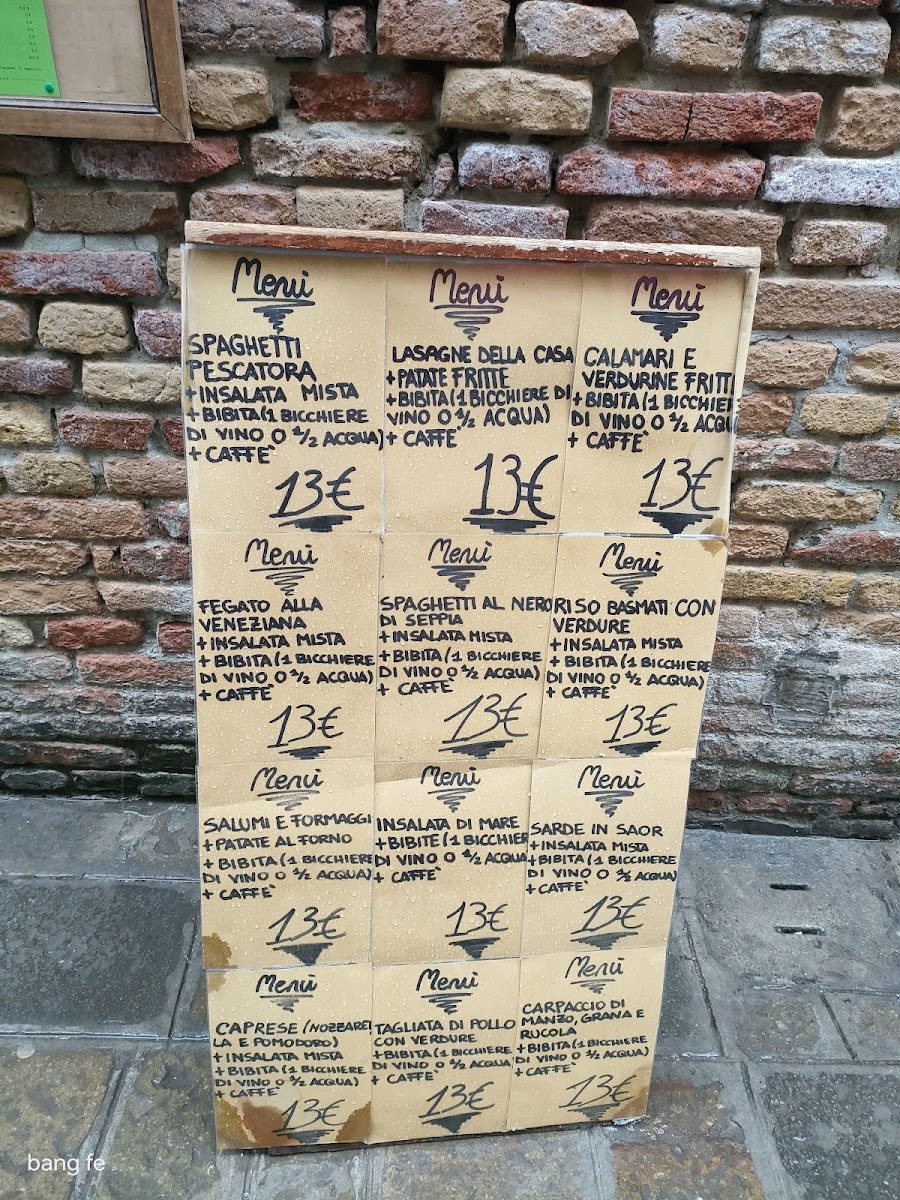 Menù
SPAGHETTI
PESCATORA
+INSALATA MISTA
+BIBITA(1 BICCHIERE
DI VINO O 1/2 ACQUA)
+ CAFFE`
13€
Menù
LASAGNE DELLA CASA
+PATATE FRITTE
+BIBITA(1 BICCHIERE DI
VINO O 1/2 ACQUA)
+ CAFFE`
13€
Menù
CALAMARI E
VERDURINE FRITT
+BIBITA(1 BICCHIE
DI VINO O 1/2 ACQU
+ CAFFE`
13€
Menù
FEGATO ALLA
VENEZIANA
+INSALATA MISTA
+BIBITA(1 BICCHIERE
DI VINO O 1/2 ACQUA)
+ CAFFE`
13€
Menù
SPAGHETTI AL NERO
DI SEPPIA
+INSALATA MISTA
+BIBITA(1 BICCHIERE
DI VINO O 1/2 ACQUA)
+ CAFFE`
13€
Menù
RISO BASMATI CON
VERDURE
+INSALATA MISTA
+BIBITA(1 BICCHIERE
DI VINO O 1/2 ACQUA)
+ CAFFE`
13€
Menù
SALUMI E FORMAGGI
+PATATE AL FORNO
+BIBITA(1 BICCHIERE
DI VINO O 1/2 ACQUA)
+ CAFFE`
13€
Menù
INSALATA DI MARE
+BIBITE(1 BICCHIER
DI VINO O 1/2 ACQUA
+ CAFFE`
13€
Menù
SARDE IN SAOR
+INSALATA MISTA
+BIBITA(1 BICCHIERE
DI VINO O 1/2 ACQUA)
+ CAFFE`
13€
Menù
CAPRESE (MOZZAREL
LA E POMODORO)
+INSALATA MISTA
+BIBITA(1 BICCHIERE
DI VINO O 1/2 ACQUA)
+ CAFFE`
13€
Menù
TAGLIATA DI POLLO
CON VERDURE
+BIBITA(1 BICCHIERE
DI VINO O 1/2 ACQUA)
+ CAFFE`
13€
Menù
CARPACCIO DI
MANZO, GRANA E
RUCOLA
+BIBITA(1 BICCHIERE
DI VINO O 1/2 ACQUA)
+ CAFFE`
13€
bang fe